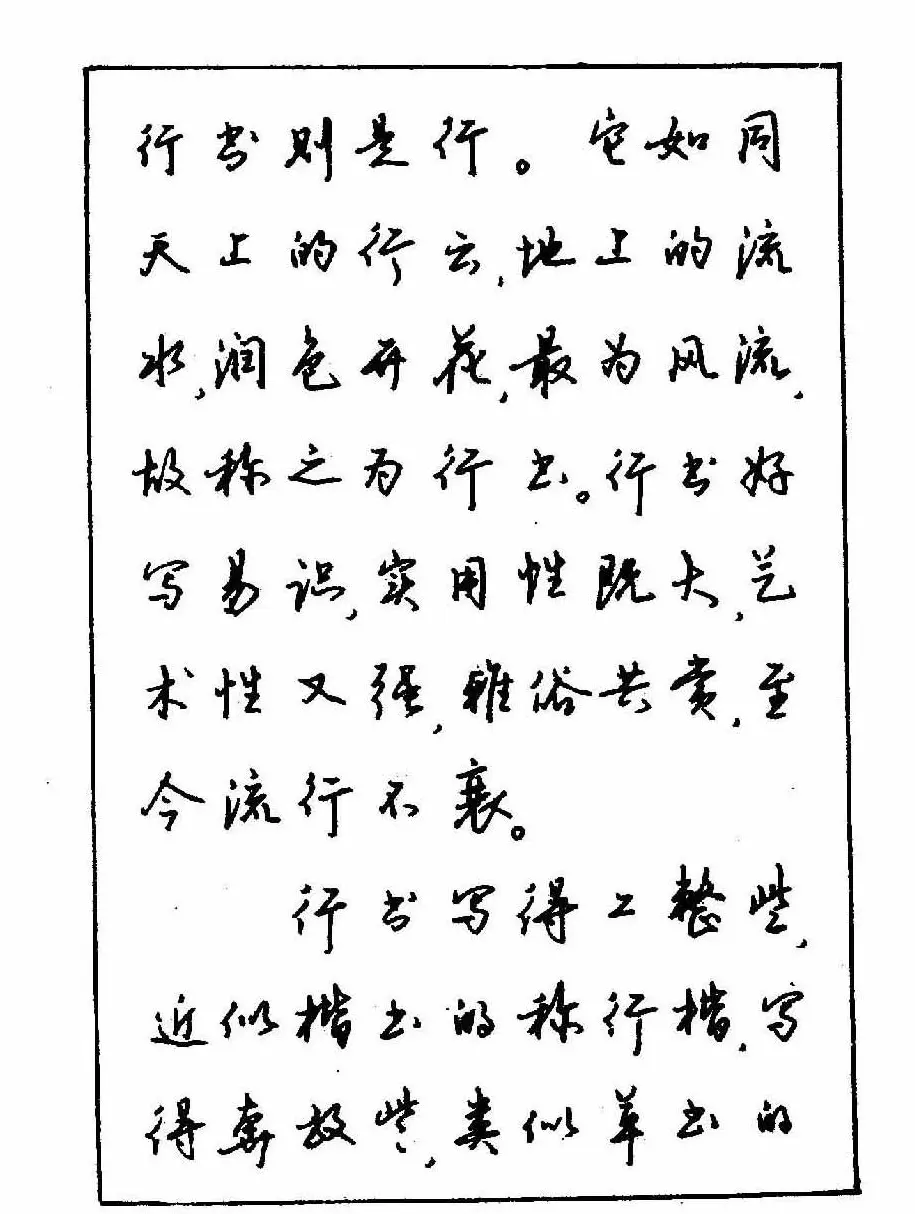 行书则是行。它如同
天上的行云,地上的流
水,润色开花,最为风流,
故称之为行书。行书好
写易识,实用性既大,艺
术性又强,雅俗共赏,至
今流行不衰。
行书写得工整些,
近似楷书的称行楷,写
得奔放些,类似草书的